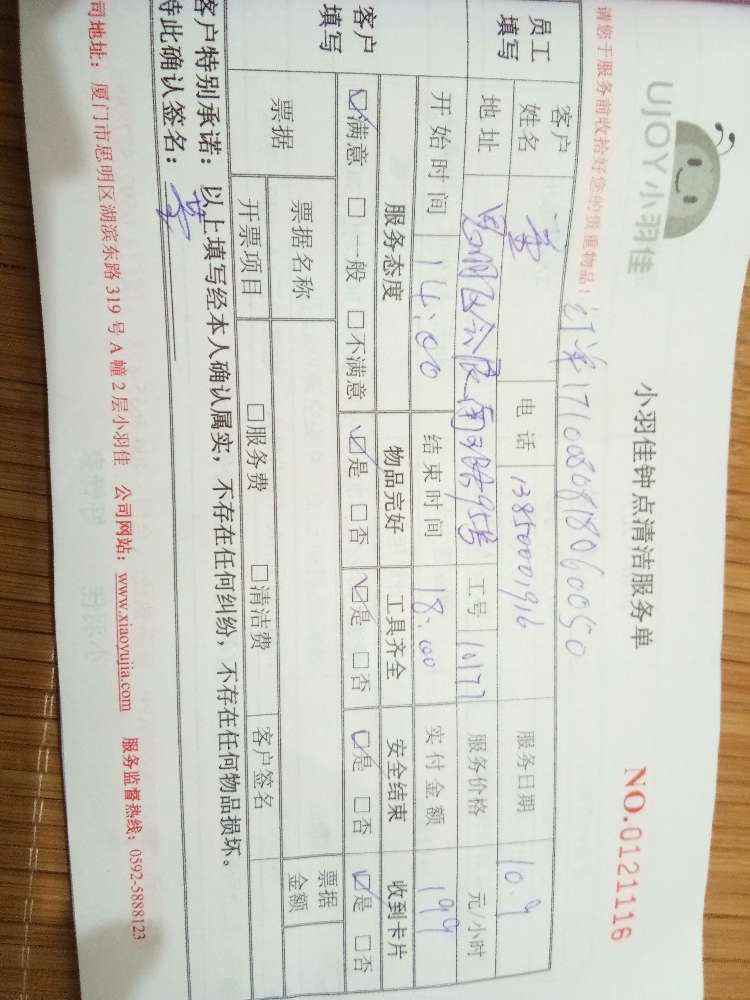 UJOY小羽佳
小羽佳钟点清洁服务单
NO.0121116
请您于服务前收拾好您的贵重物品!
订单1710086818060050
员工填写
客户姓名 黄 电话 13850001916 服务日期 10.9
地址 95号 工号 10177 服务价格 元/小时
开始时间 14:00 结束时间 18:00 实付金额 199
客户填写
服务态度 物品完好 工具齐全 安全结束 收到卡片
☑满意 □一般 □不满意 ☑是 □否 ☑是 □否 ☑是 □否 ☑是 □否
票据 票据名称 票据金额
开票项目 □服务费 □清洁费 客户签名
客户特别承诺：以上填写经本人确认属实，不存在任何纠纷，不存在任何物品损坏。
特此确认签名：黄
司地址：厦门市思明区湖滨东路319号A幢2层小羽佳 公司网站：www.xiaoyujia.com 服务监督热线：0592-5888123